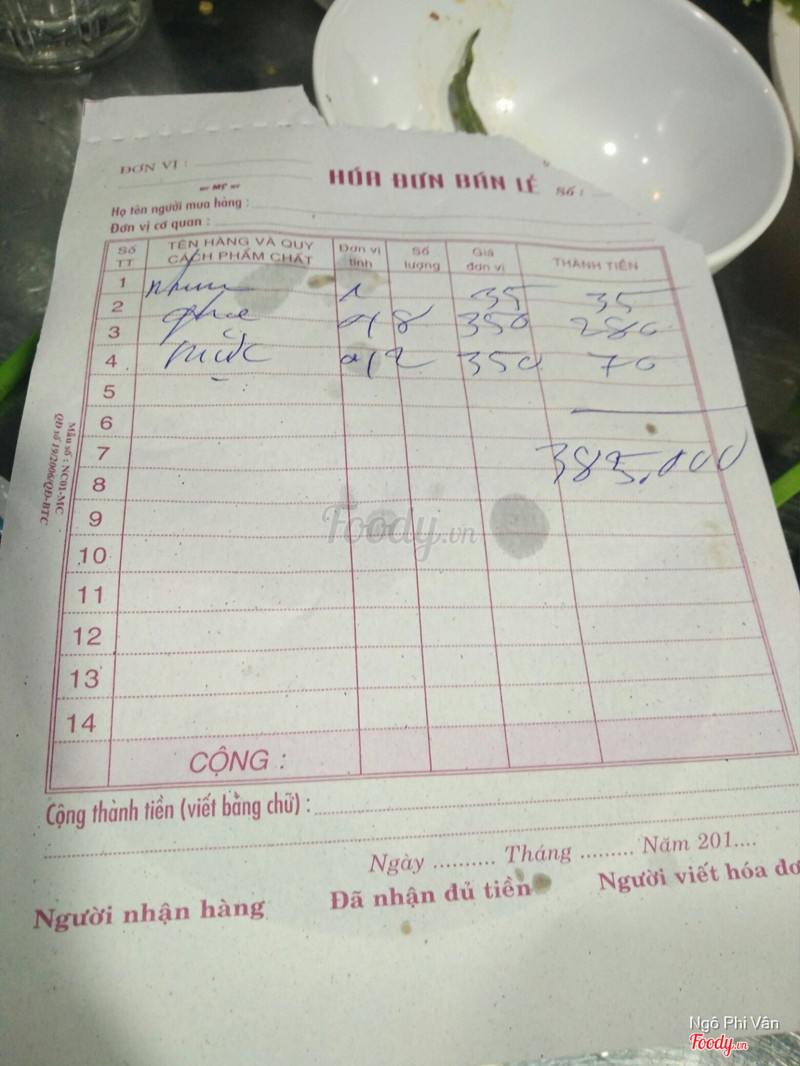 ĐƠN VỊ :
HÓA ĐƠN BÁN LẺ Số :
Họ tên người mua hàng :
Đơn vị cơ quan :
Số TT TÊN HÀNG VÀ QUY CÁCH PHẨM CHẤT Đơn vị tính Số lượng Giá đơn vị THÀNH TIỀN
1 nhum 1 35 35
2 ghẹ 0,8 350 280
3 mực 0,2 350 70
4
5
6
7 385.000
8
9
10
11
12
13
14
CỘNG :
Mẫu số : NC01-MC
QĐ số 19/2006/QĐ-BTC
Cộng thành tiền (viết bằng chữ) :
Ngày .......... Tháng ......... Năm 201....
Người nhận hàng Đã nhận đủ tiền Người viết hóa đơ
Foody.vn
Ngô Phi Vân
Foody.vn